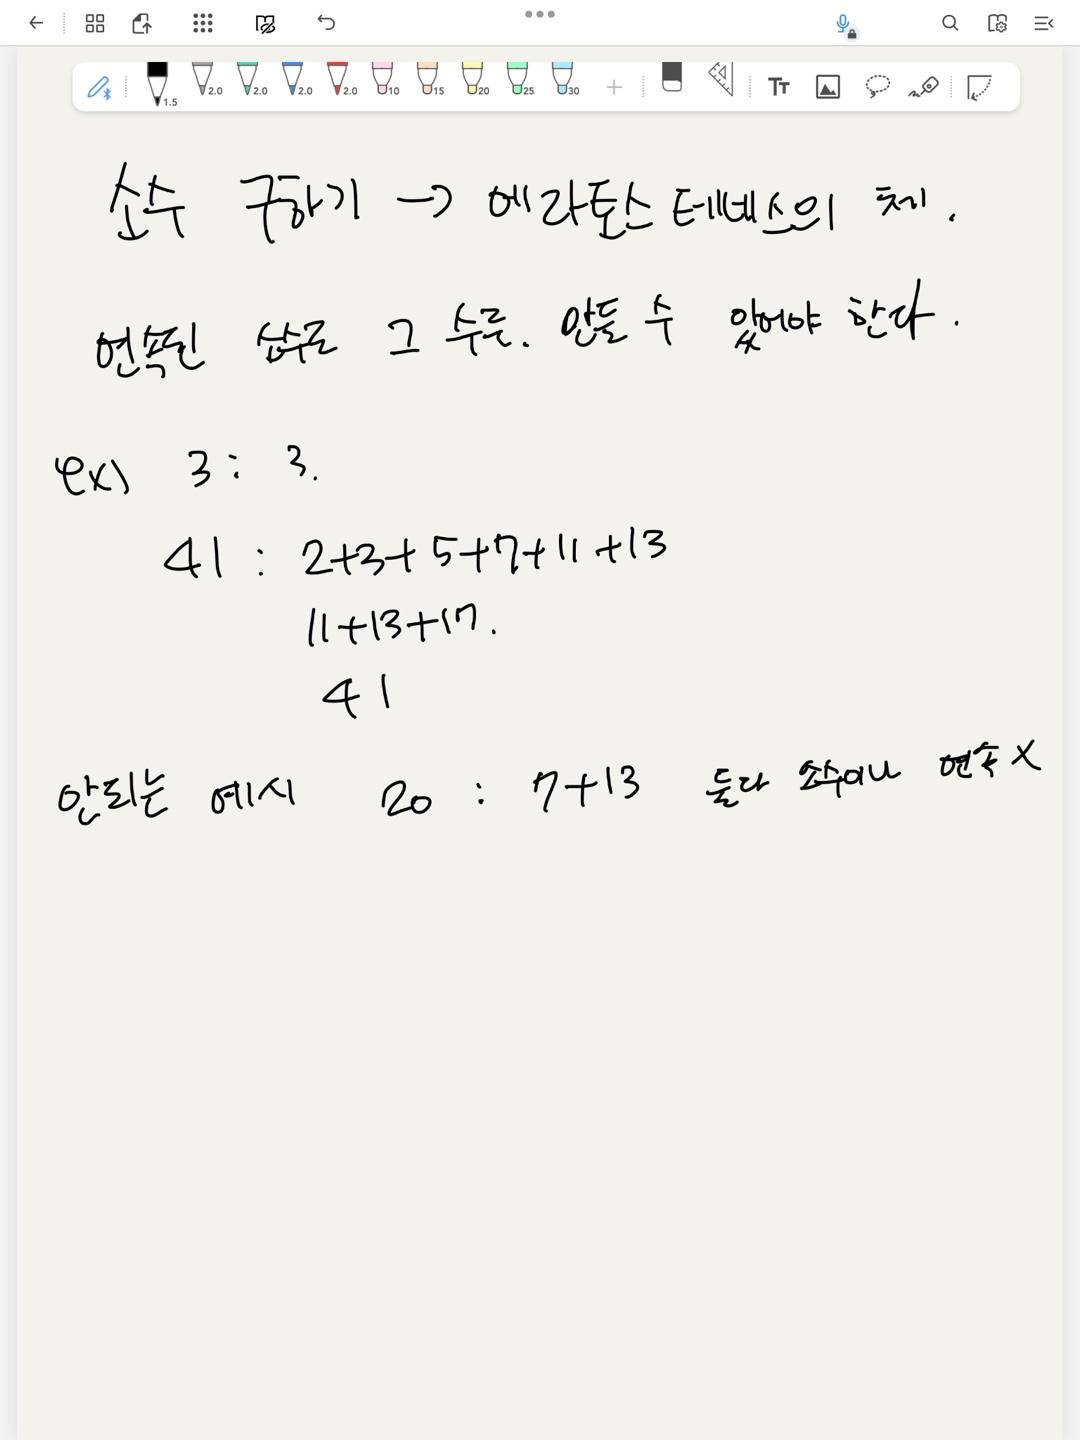 1.5 2.0 2.0 2.0 2.0 10 15 20 25 30 Tт
소수 구하기 → 에라토스테네스의 체.
연속된 소수로 그 수를. 만들 수 있어야 한다.
ex) 3 : 3.
41 : 2+3+5+7+11+13
11+13+17.
41
안되는 예시 20 : 7+13 둘다 소수이나 연속 X